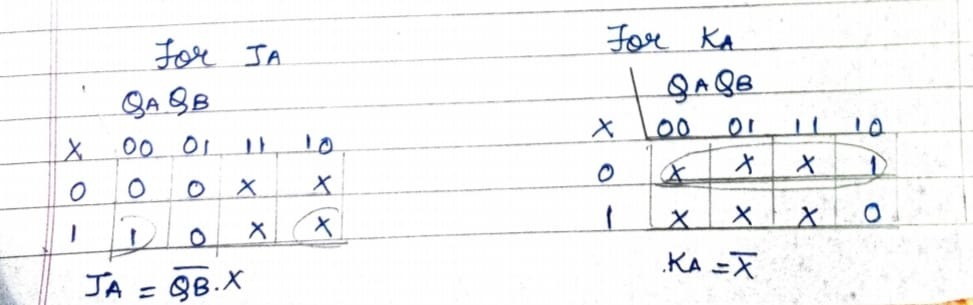 For JA
QA QB
X 00 01 11 10
0 0 0 X X
1 1 0 X X
JA = Q̅B̅.X
For KA
QA QB
X 00 01 11 10
0 X X X 1
1 X X X 0
KA = X̅